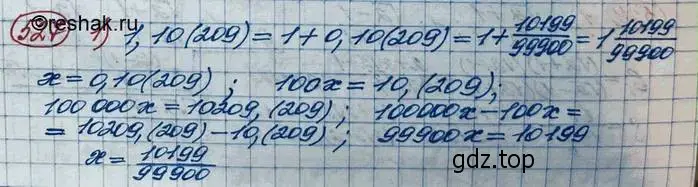 ©reshak.ru
527 1) 1,10(209) = 1 + 0,10(209) = 1 + 10199/99900 = 1 10199/99900
x = 0,10(209) ; 100x = 10,(209);
100 000x = 10209,(209) ; 100000x - 100x =
= 10209,(209) - 10,(209) ; 99900x = 10199
x = 10199/99900
gdz.top